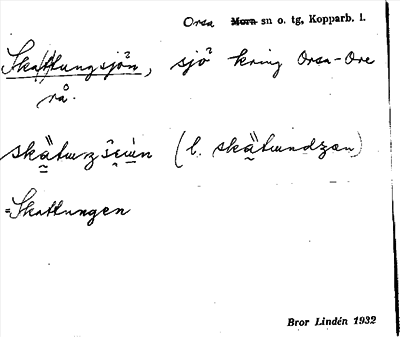 Orsa Mora sn o. tg, Kopparb. l.
Skattungsjön, sjö kring Orsa-Ore
rå.
(l.
=Skattungen
Bror Lindén 1932